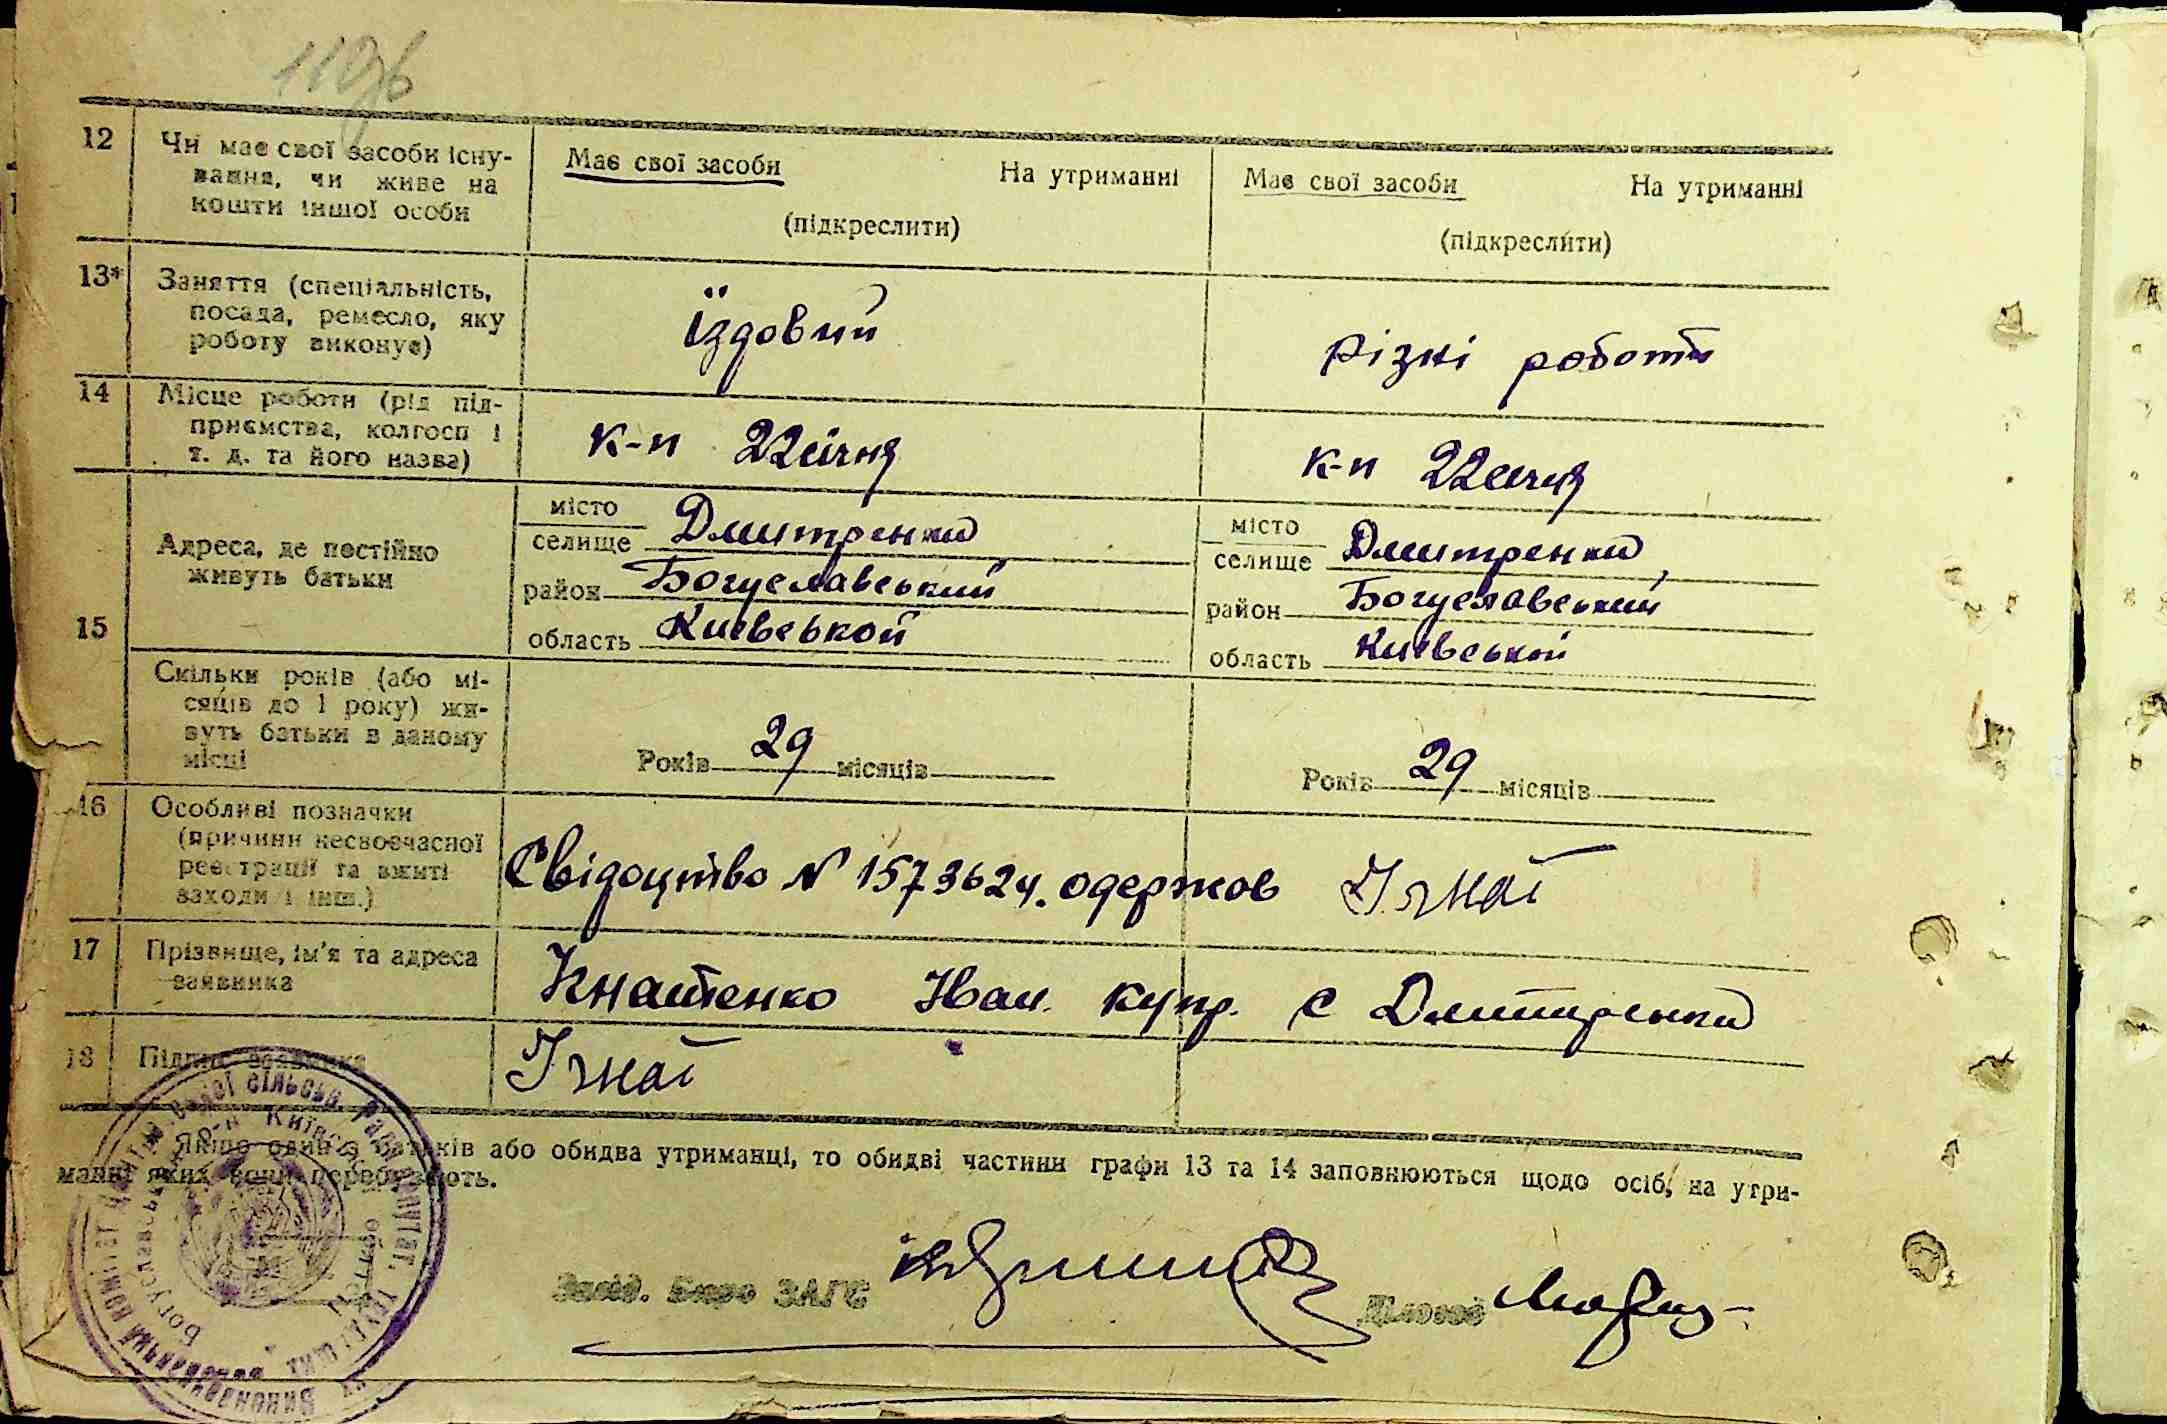 12 Чи має свої засоби існу-
вання, чи живе на
кошти іншої особи
Має свої засоби На утриманні
(підкреслити)
Має свої засоби На утриманні
(підкреслити)
13* Заняття (спеціальність,
посада, ремесло, яку
роботу виконує)
їздовий
різні роботи
14 Місце роботи (рід під-
приємства, колгосп і
т. д. та його назва)
к-п 22 січня
к-п 22 січня
15 Адреса, де постійно
живуть батьки
місто
селище Дмитренки
район Богуславський
область Київської
місто
селище Дмитренки
район Богуславський
область Київській
Скільки років (або мі-
сяців до 1 року) жи-
вуть батьки в даному
місці
Років 29 місяців
Років 29 місяців
16 Особливі позначки
(причини несвоєчасної
реєстрації та вжиті
заходи і інш.)
Свідоцтво N 1573624. одержов
17 Прізвище, ім'я та адреса
заявника
Ігнатенко Іван. Купр. с Дмитренки
18 Підпис заявника
Якщо один з батьків або обидва утриманці, то обидві частини графи 13 та 14 заповнюються щодо осіб, на утри-
манні яких вони перебувають.
Завід. Бюро ЗАГС
Діловод